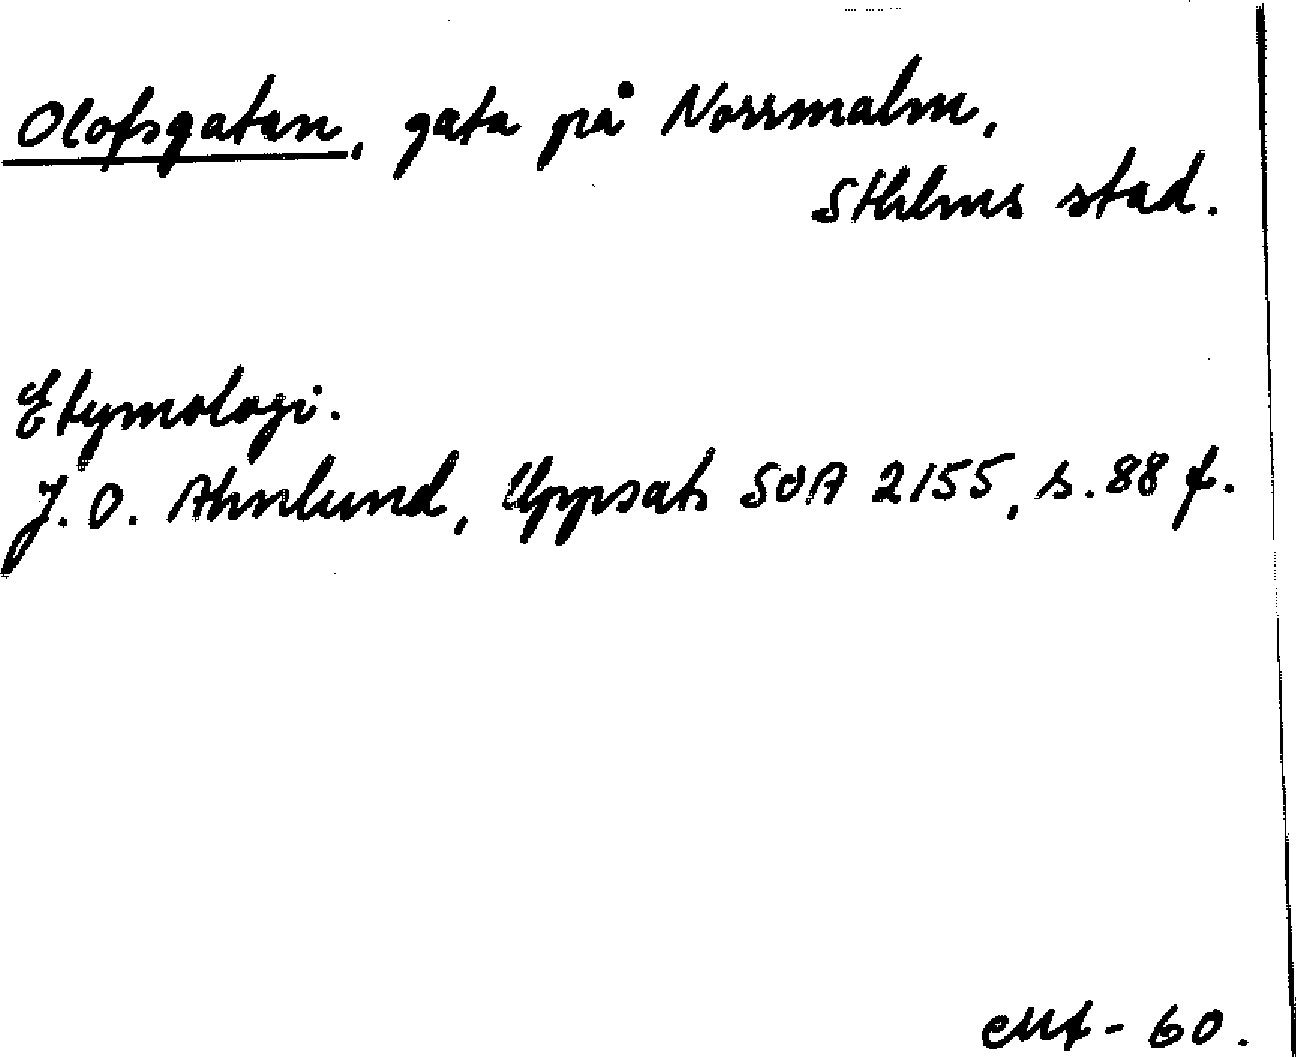 Olofsgatan, gata på Norrmalm,
Sthlms stad.
Etymologi.
J. O. Ahnlund, Uppsats SOA 2155, s. 88 f.
- 60.